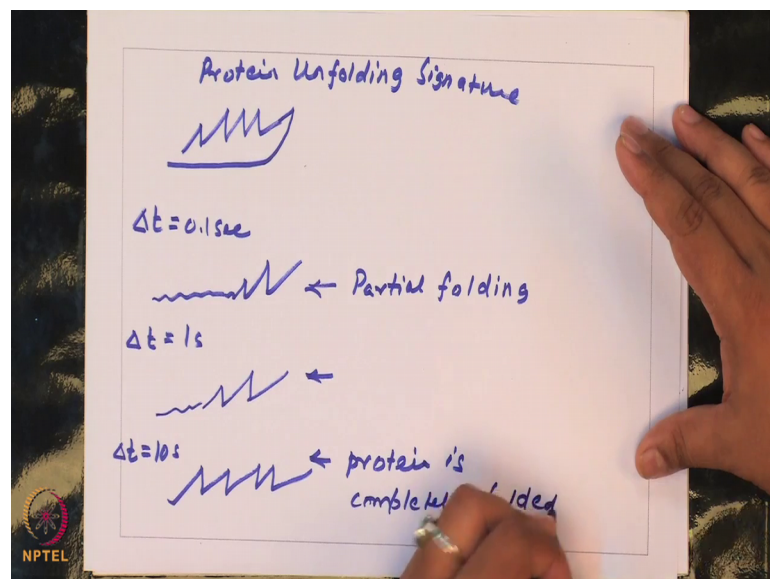 Protein Unfolding Signature
Δt = 0.1sec
← Partial folding
Δt = 1s
←
Δt = 10s
← protein is
NPTEL